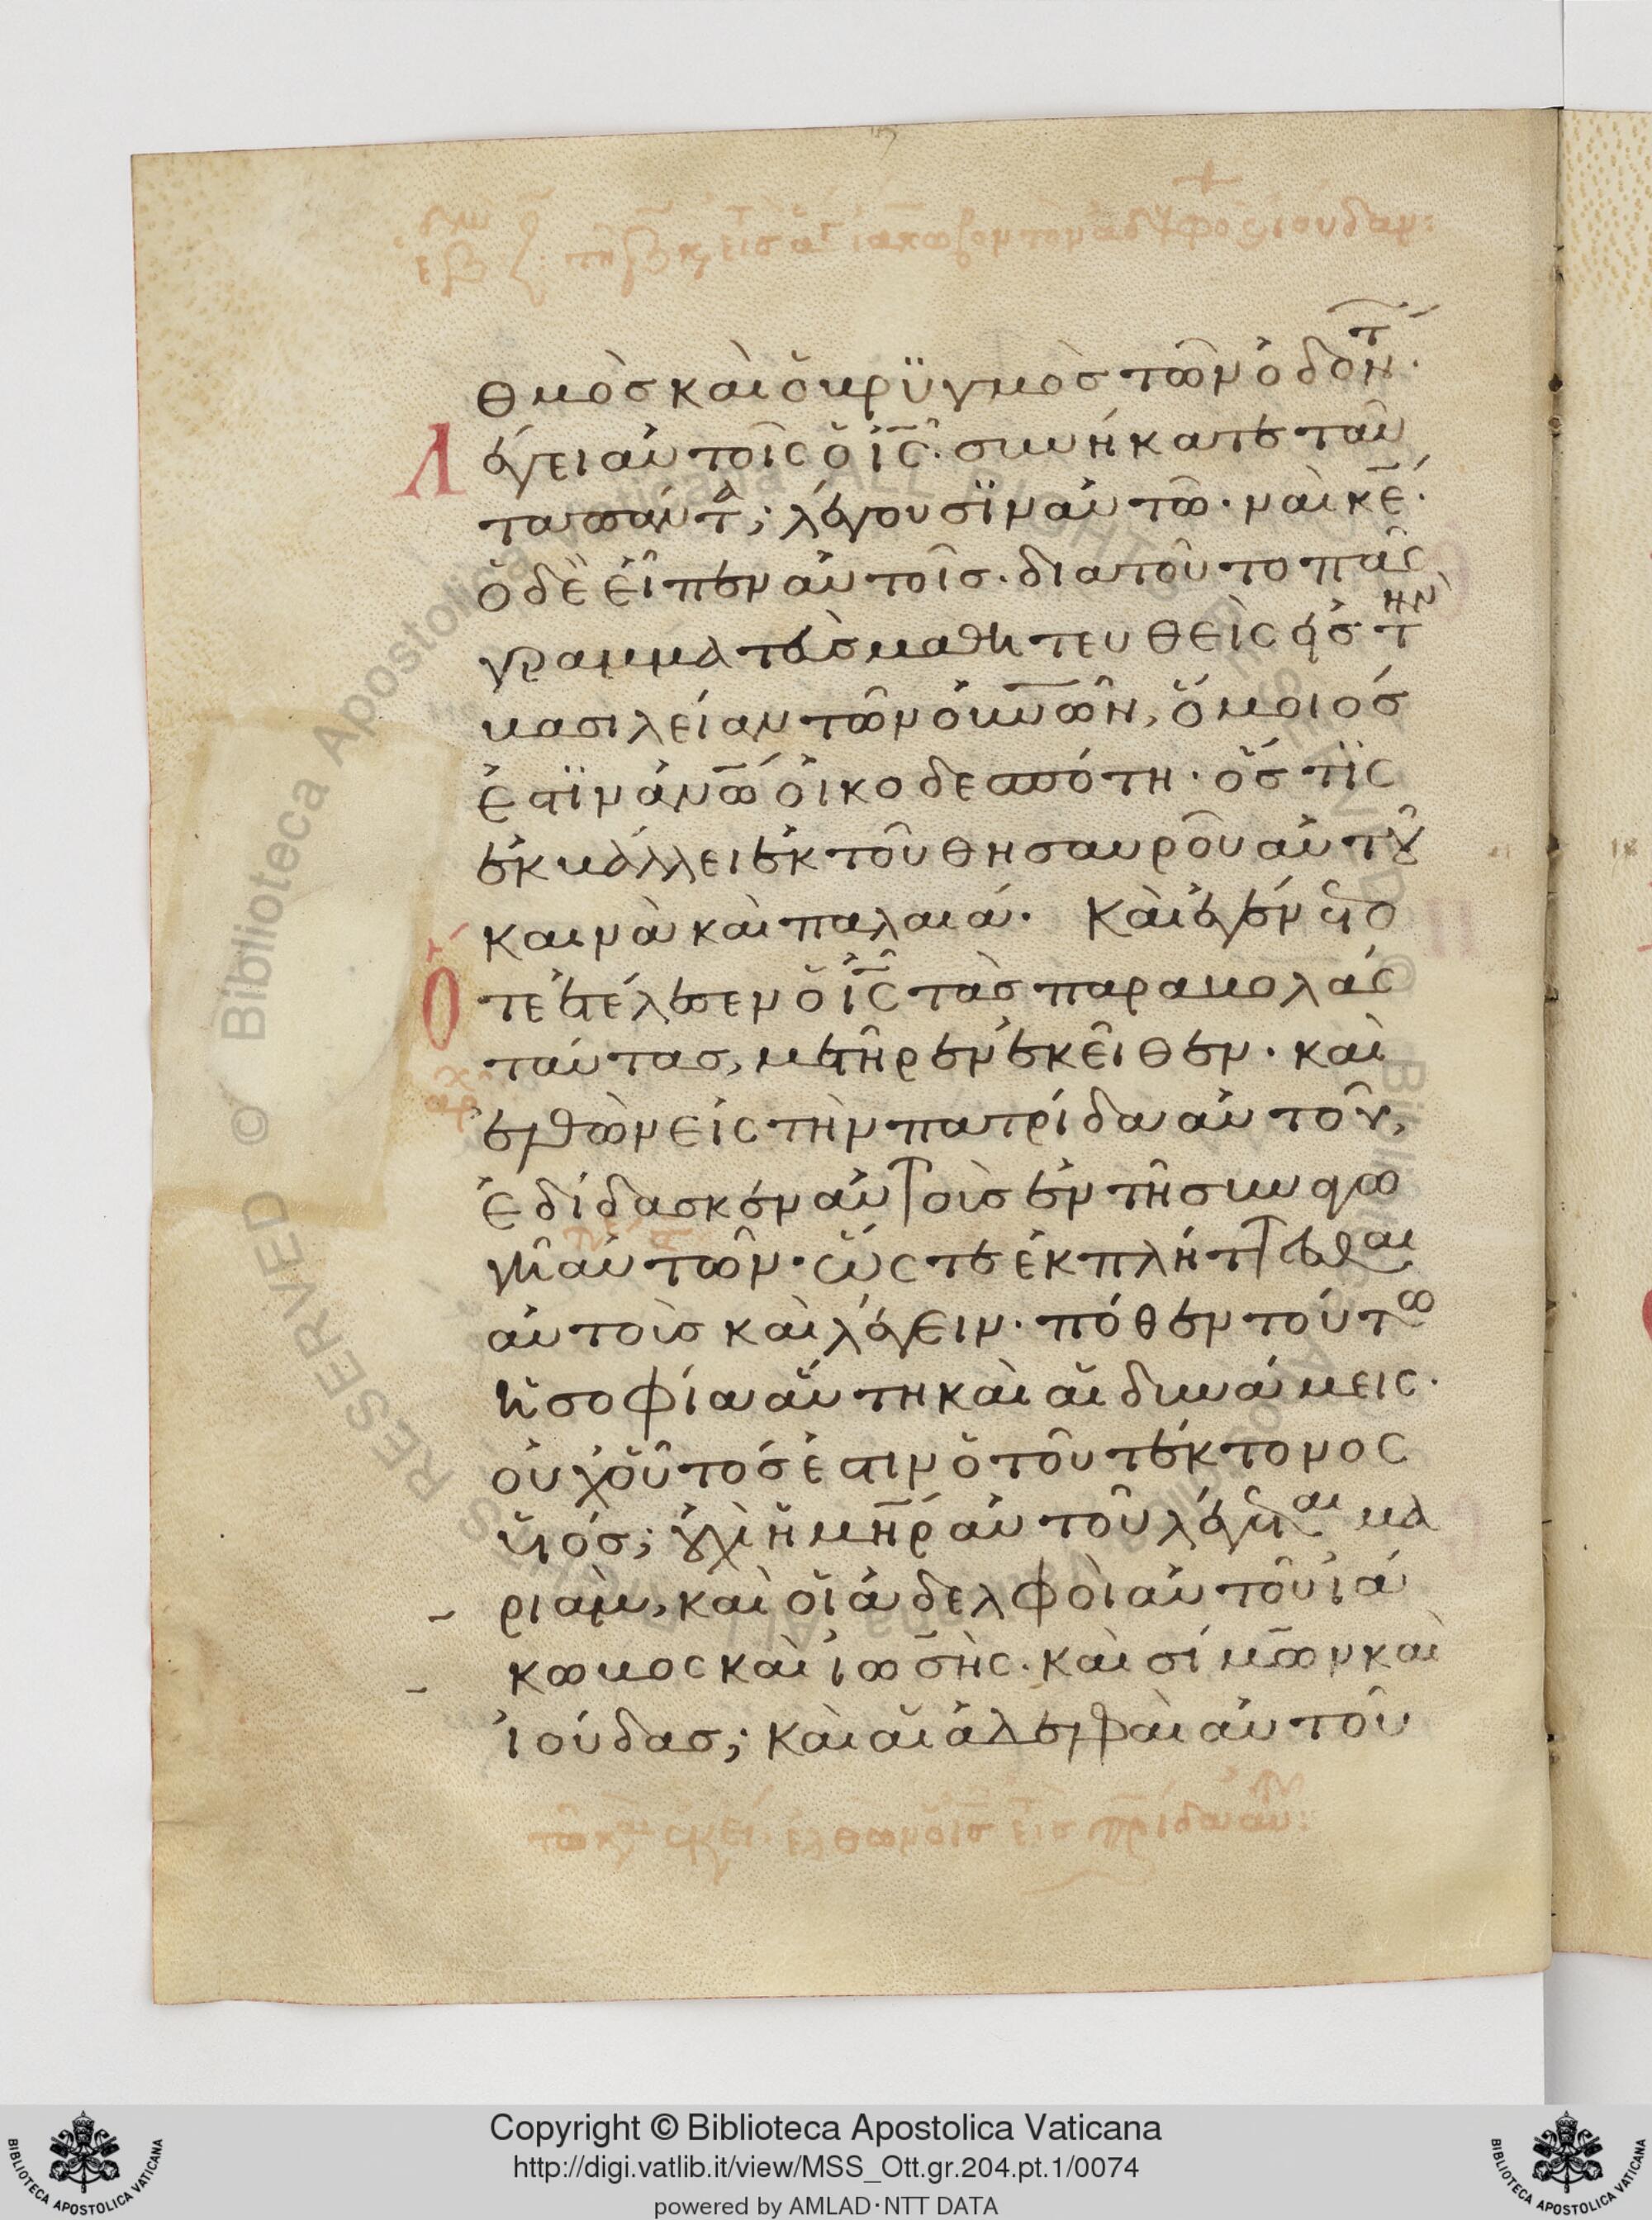 θμὸς καὶ ὁ βρϋγμὸς τῶν ὀδόν̅τ̅.
Λέγει αὐτοῖς ὁ ἰ̅ς̅. συνήκατε ταῦ
τα πάντα; λέγουσϊν αὐτῶ. ναὶ κ̅ε̅.
ὁ δὲ εἶπεν αὐτοῖς. διατοῦτο πᾶς
γραμματεὺς μαθητευθεὶς εἰς τὴν
βασιλείαν τῶν ο̅υ̅ν̅ῶ̅ν, ὅμοιός
ἐστϊν α̅ν̅ω̅ οἰκοδεσπότη. ὅς τϊς
ἐκβάλλει ἐκ τοῦ θησαυροῦ αὐτοῦ
καινὰ καὶ παλαιά. Καὶ ἐγένετο
Ὅτε ἐτέλεσεν ὁ ἰ̅ς̅ τὰς παραβολὰς
ταύτας, μετῆρεν ἐκεῖθεν. καὶ
ἐλθὼν εἰς τὴν πατρίδα αὐτοῦ,
ἐδίδασκεν αὐτοὺς ἐν τῆ συναγω
γῆ αὐτῶν. ὥς τε ἐκπλήττεσθαι
αὐτοὺς καὶ λέγειν. πόθεν τούτω
ἡ σοφία αὕτη καὶ αἱ δυνάμεις.
οὐχ οὗτός ἐστιν ὁ τοῦ τέκτονος
υἱός; οὐχὶ ἡ μ̅η̅ρ̅ αὐτοῦ λέγεται μα
ριὰμ, καὶ οἱ ἀδελφοὶ αὐτοῦ ἰά
κωβος καὶ ἰωσῆς. καὶ σίμων καὶ
ἰούδας; καὶ αἱ ἀδελφαὶ αὐτοῦ
ἐλθὼν ὁ ἰ̅ς̅ εἰς π̅ρ̅ίδα αὐτοῦ:
Copyright © Biblioteca Apostolica Vaticana
http://digi.vatlib.it/view/MSS_Ott.gr.204.pt.1/0074
powered by AMLAD·NTT DATA